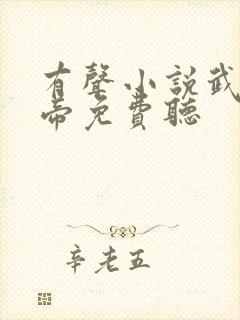 有聲小說武
帝免費聽
辛老五